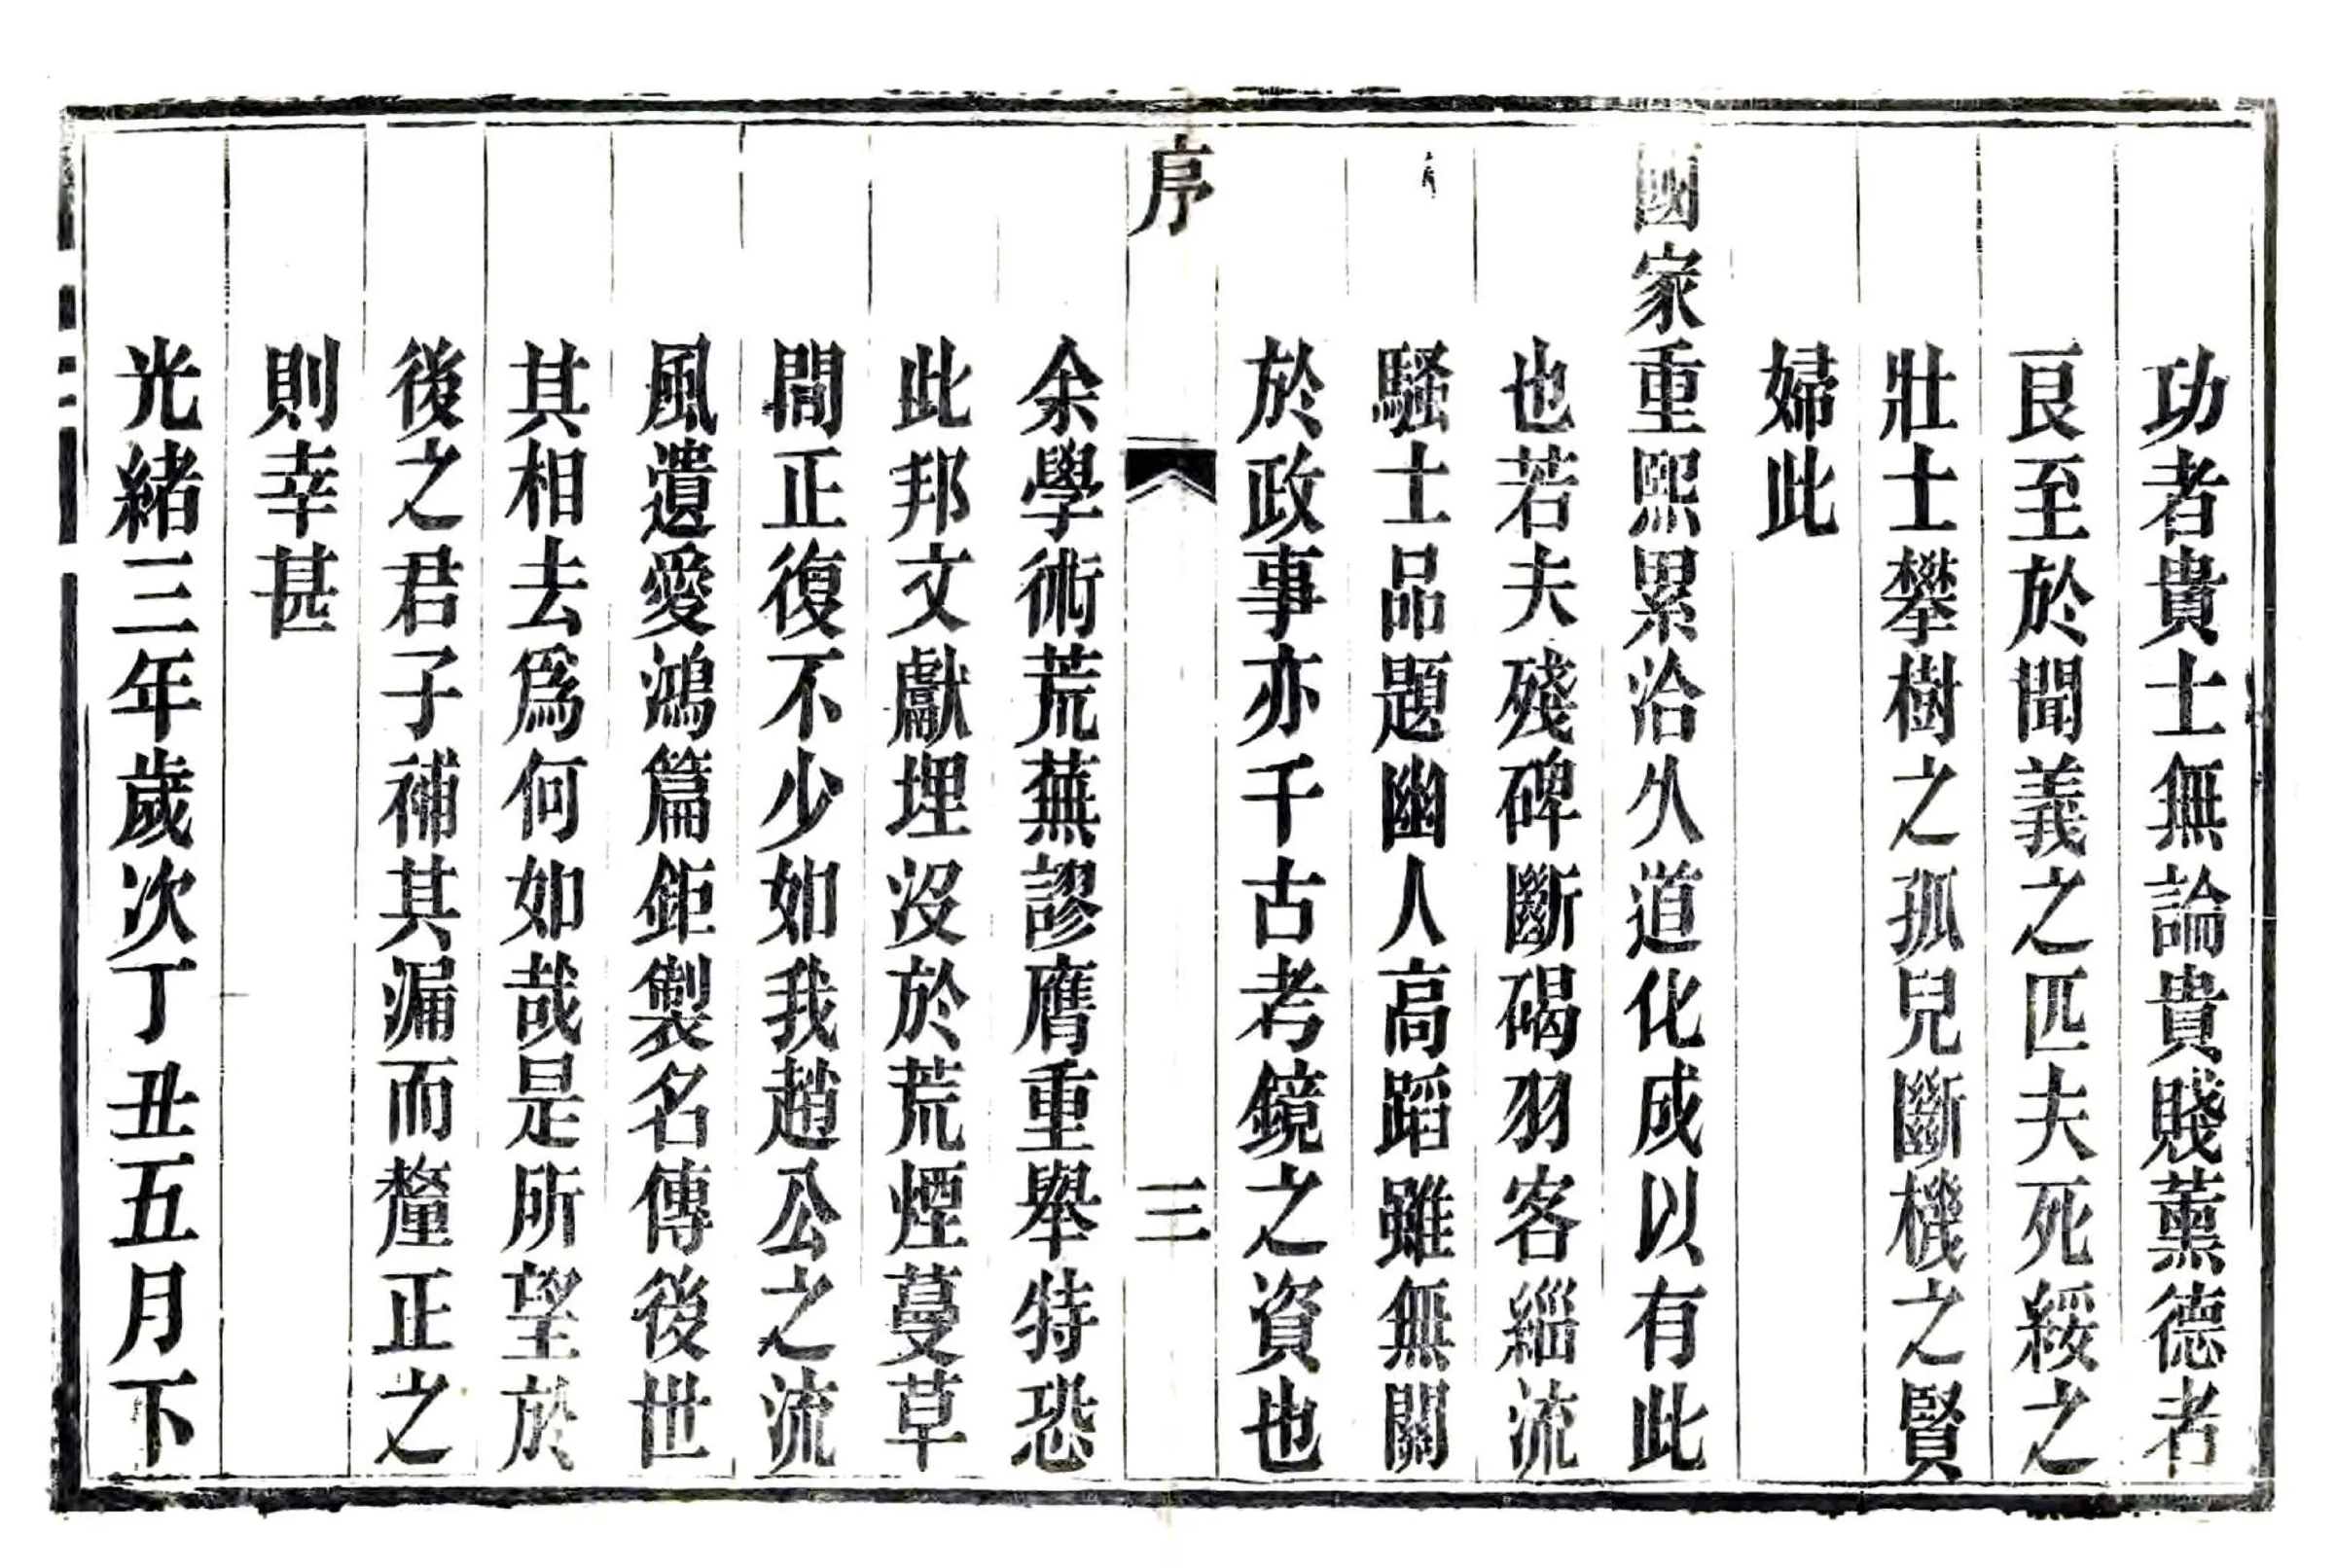 功者貴士無論貴賤薰德者
艮至於聞義之匹夫死綏之
壯士攀樹之孤兒斷機之賢
婦此
國家重熙累洽久道化成以有此
也若夫殘碑斷碣羽客緇流
騷士品題幽人高蹈雖無關
於政事亦千古考鏡之資也
序 三
余學術荒蕪謬膺重舉特恐
此邦文獻埋沒於荒煙蔓草
間正復不少如我趙公之流
風遺愛鴻篇鉅製名傳後世
其相去爲何如哉是所望於
後之君子補其漏而釐正之
則幸甚
光緒三年歲次丁丑五月下